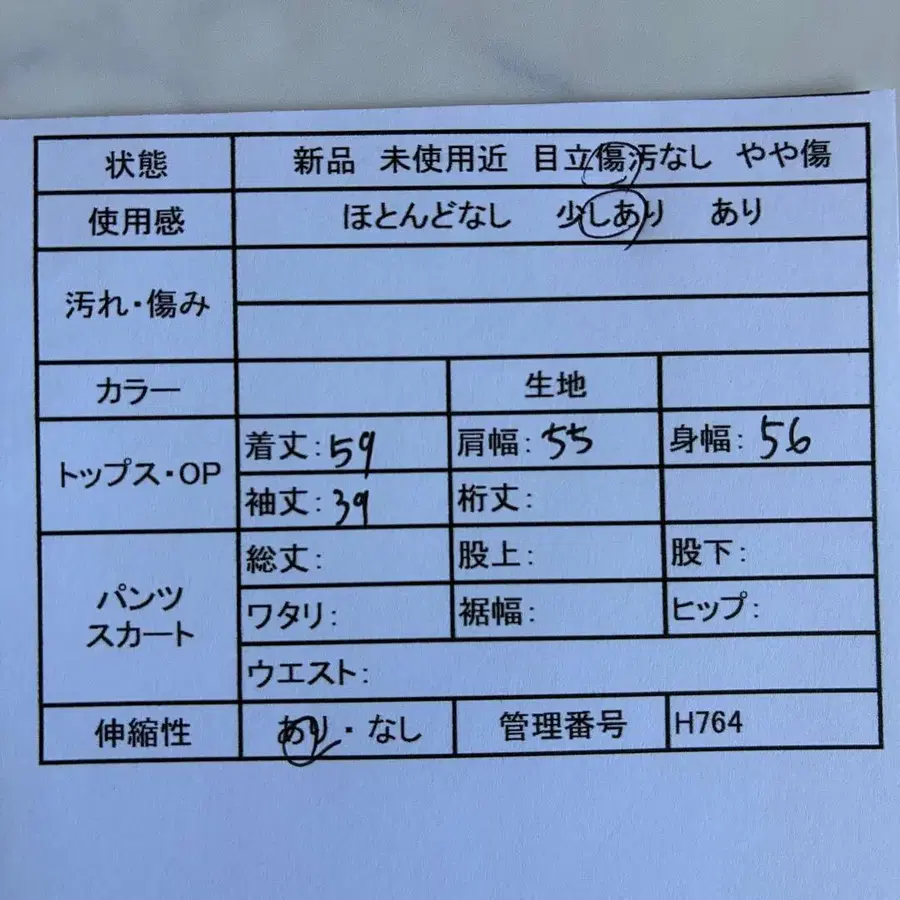 状態 新品 未使用近 目立傷汚なし やや傷
使用感 ほとんどなし 少しあり あり
汚れ・傷み
カラー 生地
トップス・OP 着丈:59 肩幅:55 身幅:56
袖丈:39 裄丈:
パンツ スカート 総丈: 股上: 股下:
ワタリ: 裾幅: ヒップ:
ウエスト:
伸縮性 あり・なし 管理番号 H764